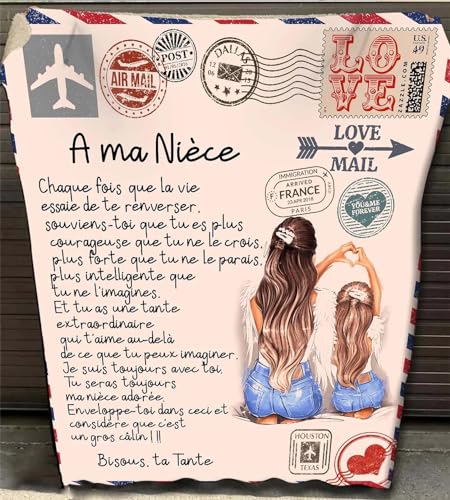 AIR MAIL
POST
DALLAS
LOVE
U.S.
49
ZAZZLE.COM
A ma Nièce
LOVE
MAIL
IMMIGRATION
ARRIVED
FRANCE
23 APR 2018
PARIS
YOU&ME
FOREVER
Chaque fois que la vie
essaie de te renverser,
souviens-toi que tu es plus
courageuse que tu ne le crois,
plus forte que tu ne le parais,
plus intelligente que
tu ne l'imagines.
Et tu as une tante
extraordinaire
qui t'aime au-delà
de ce que tu peux imaginer.
Je suis toujours avec toi.
Tu seras toujours
ma nièce adorée.
Enveloppe-toi dans ceci et
considère que c'est
un gros câlin!!!
Bisous, ta Tante
HOUSTON
TEXAS